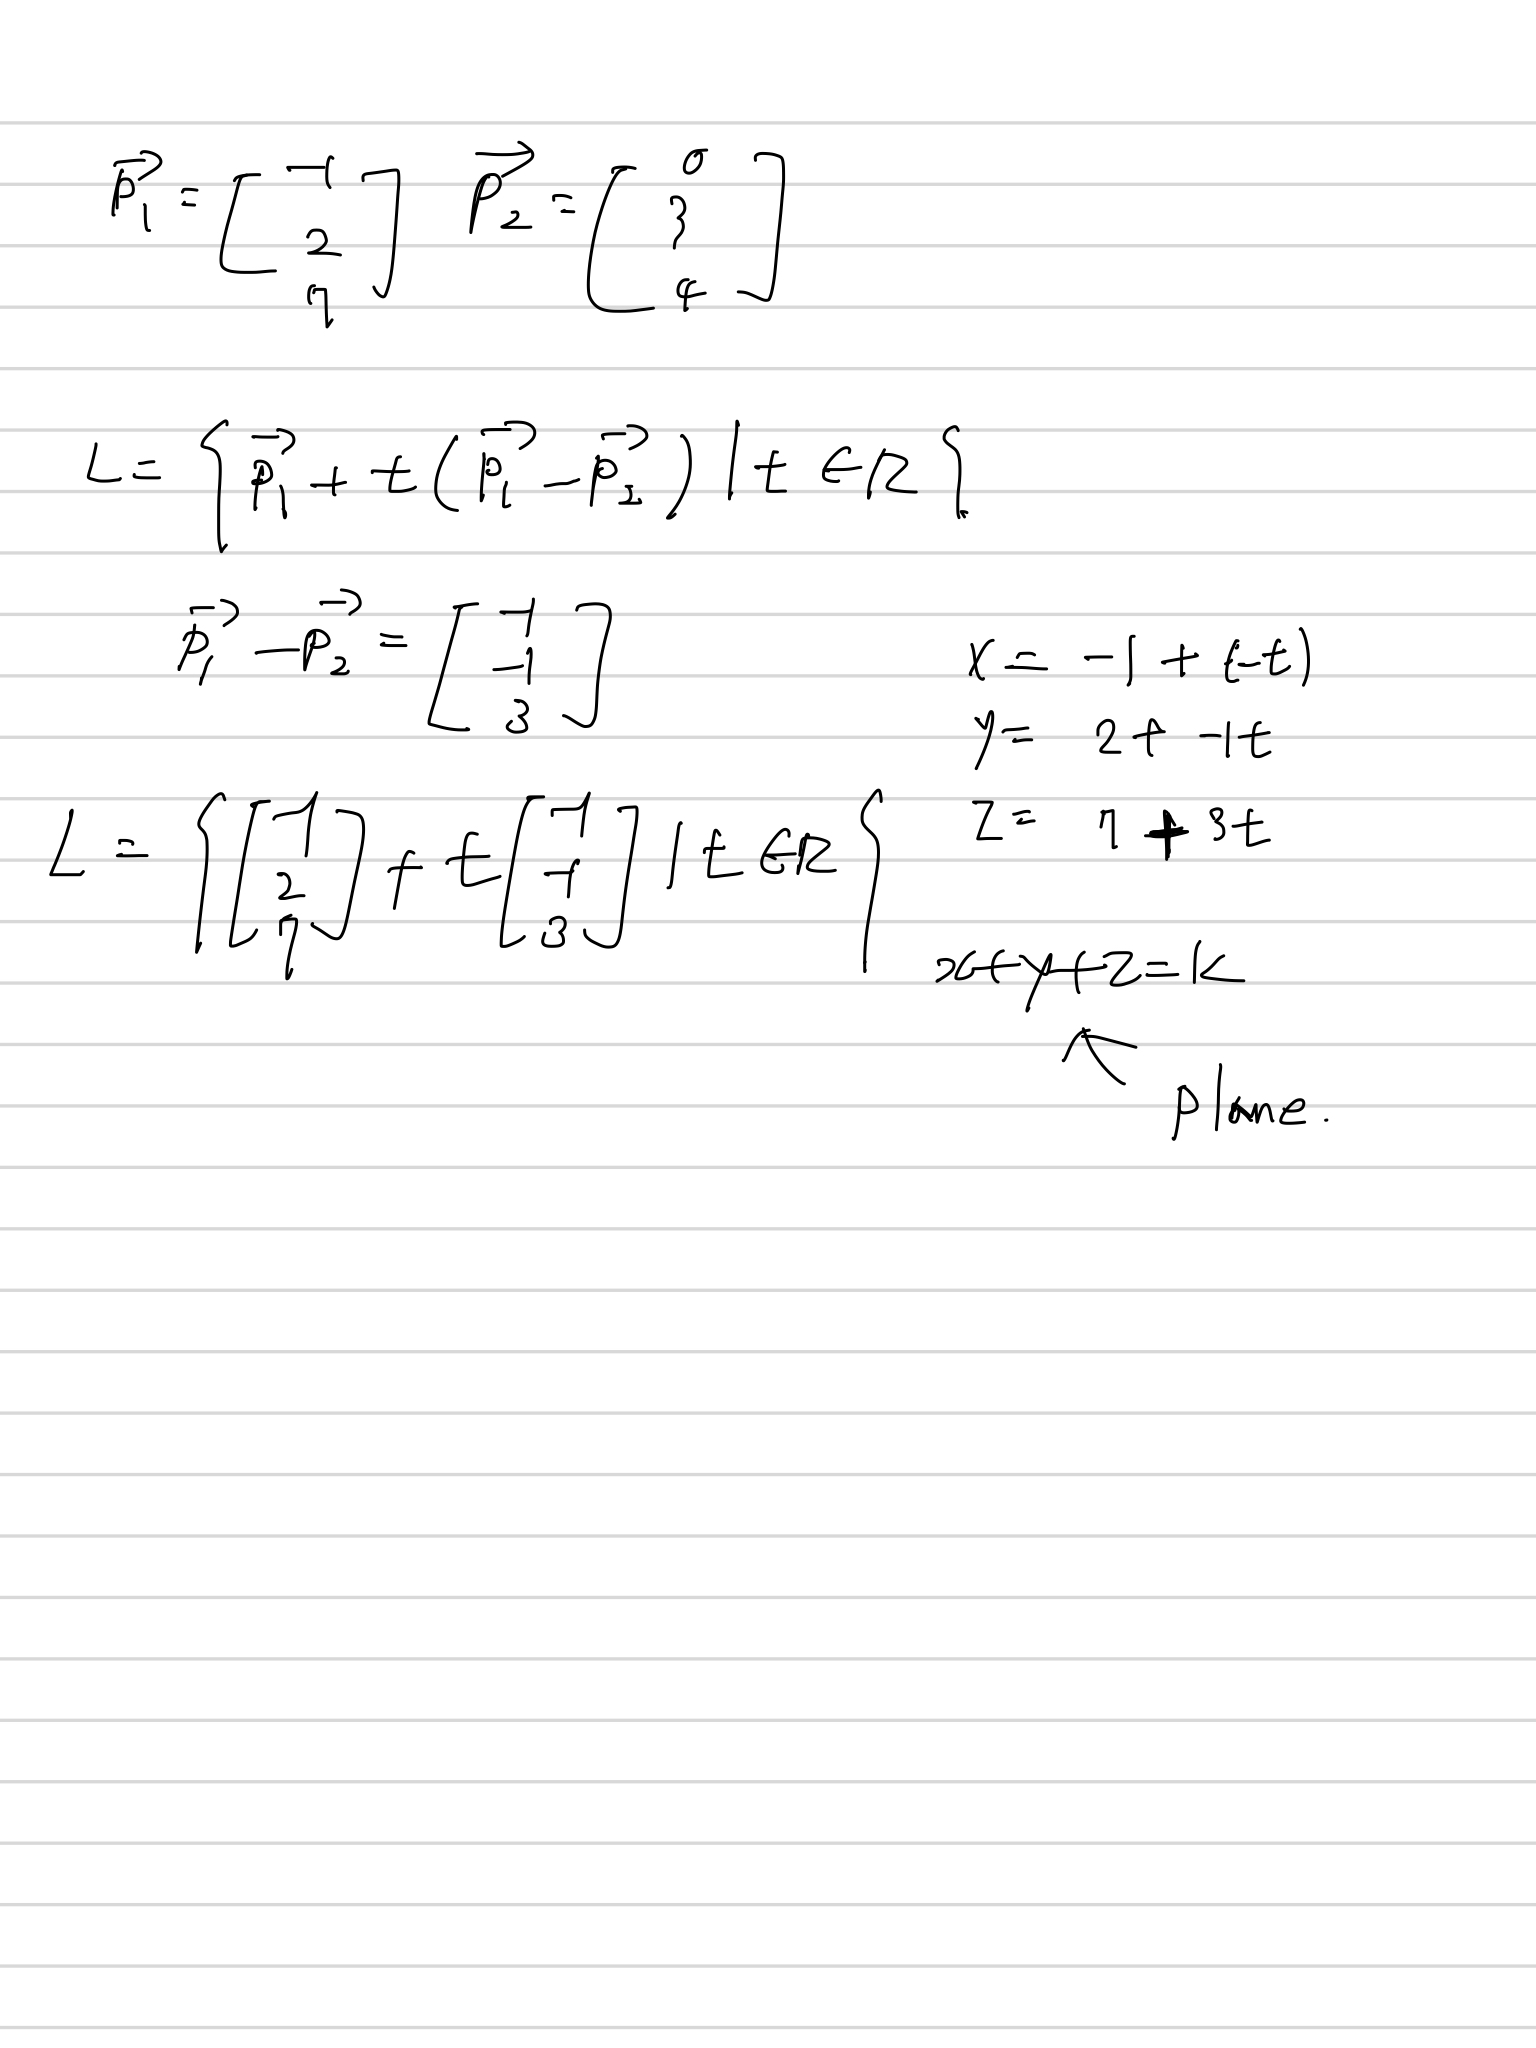 P₁⃗ = [-1 2 7] P₂⃗ = [0 3 4]
L = { P₁⃗ + t ( P₁⃗ - P₂⃗ ) | t ∈ R }
P₁⃗ - P₂⃗ = [-1 -1 3]
L = { [-1 2 7] + t [-1 -1 3] | t ∈ R }
x = -1 + (-t)
y = 2 + -1t
z = 7 + 3t
x+y+z=k
↖
plane.